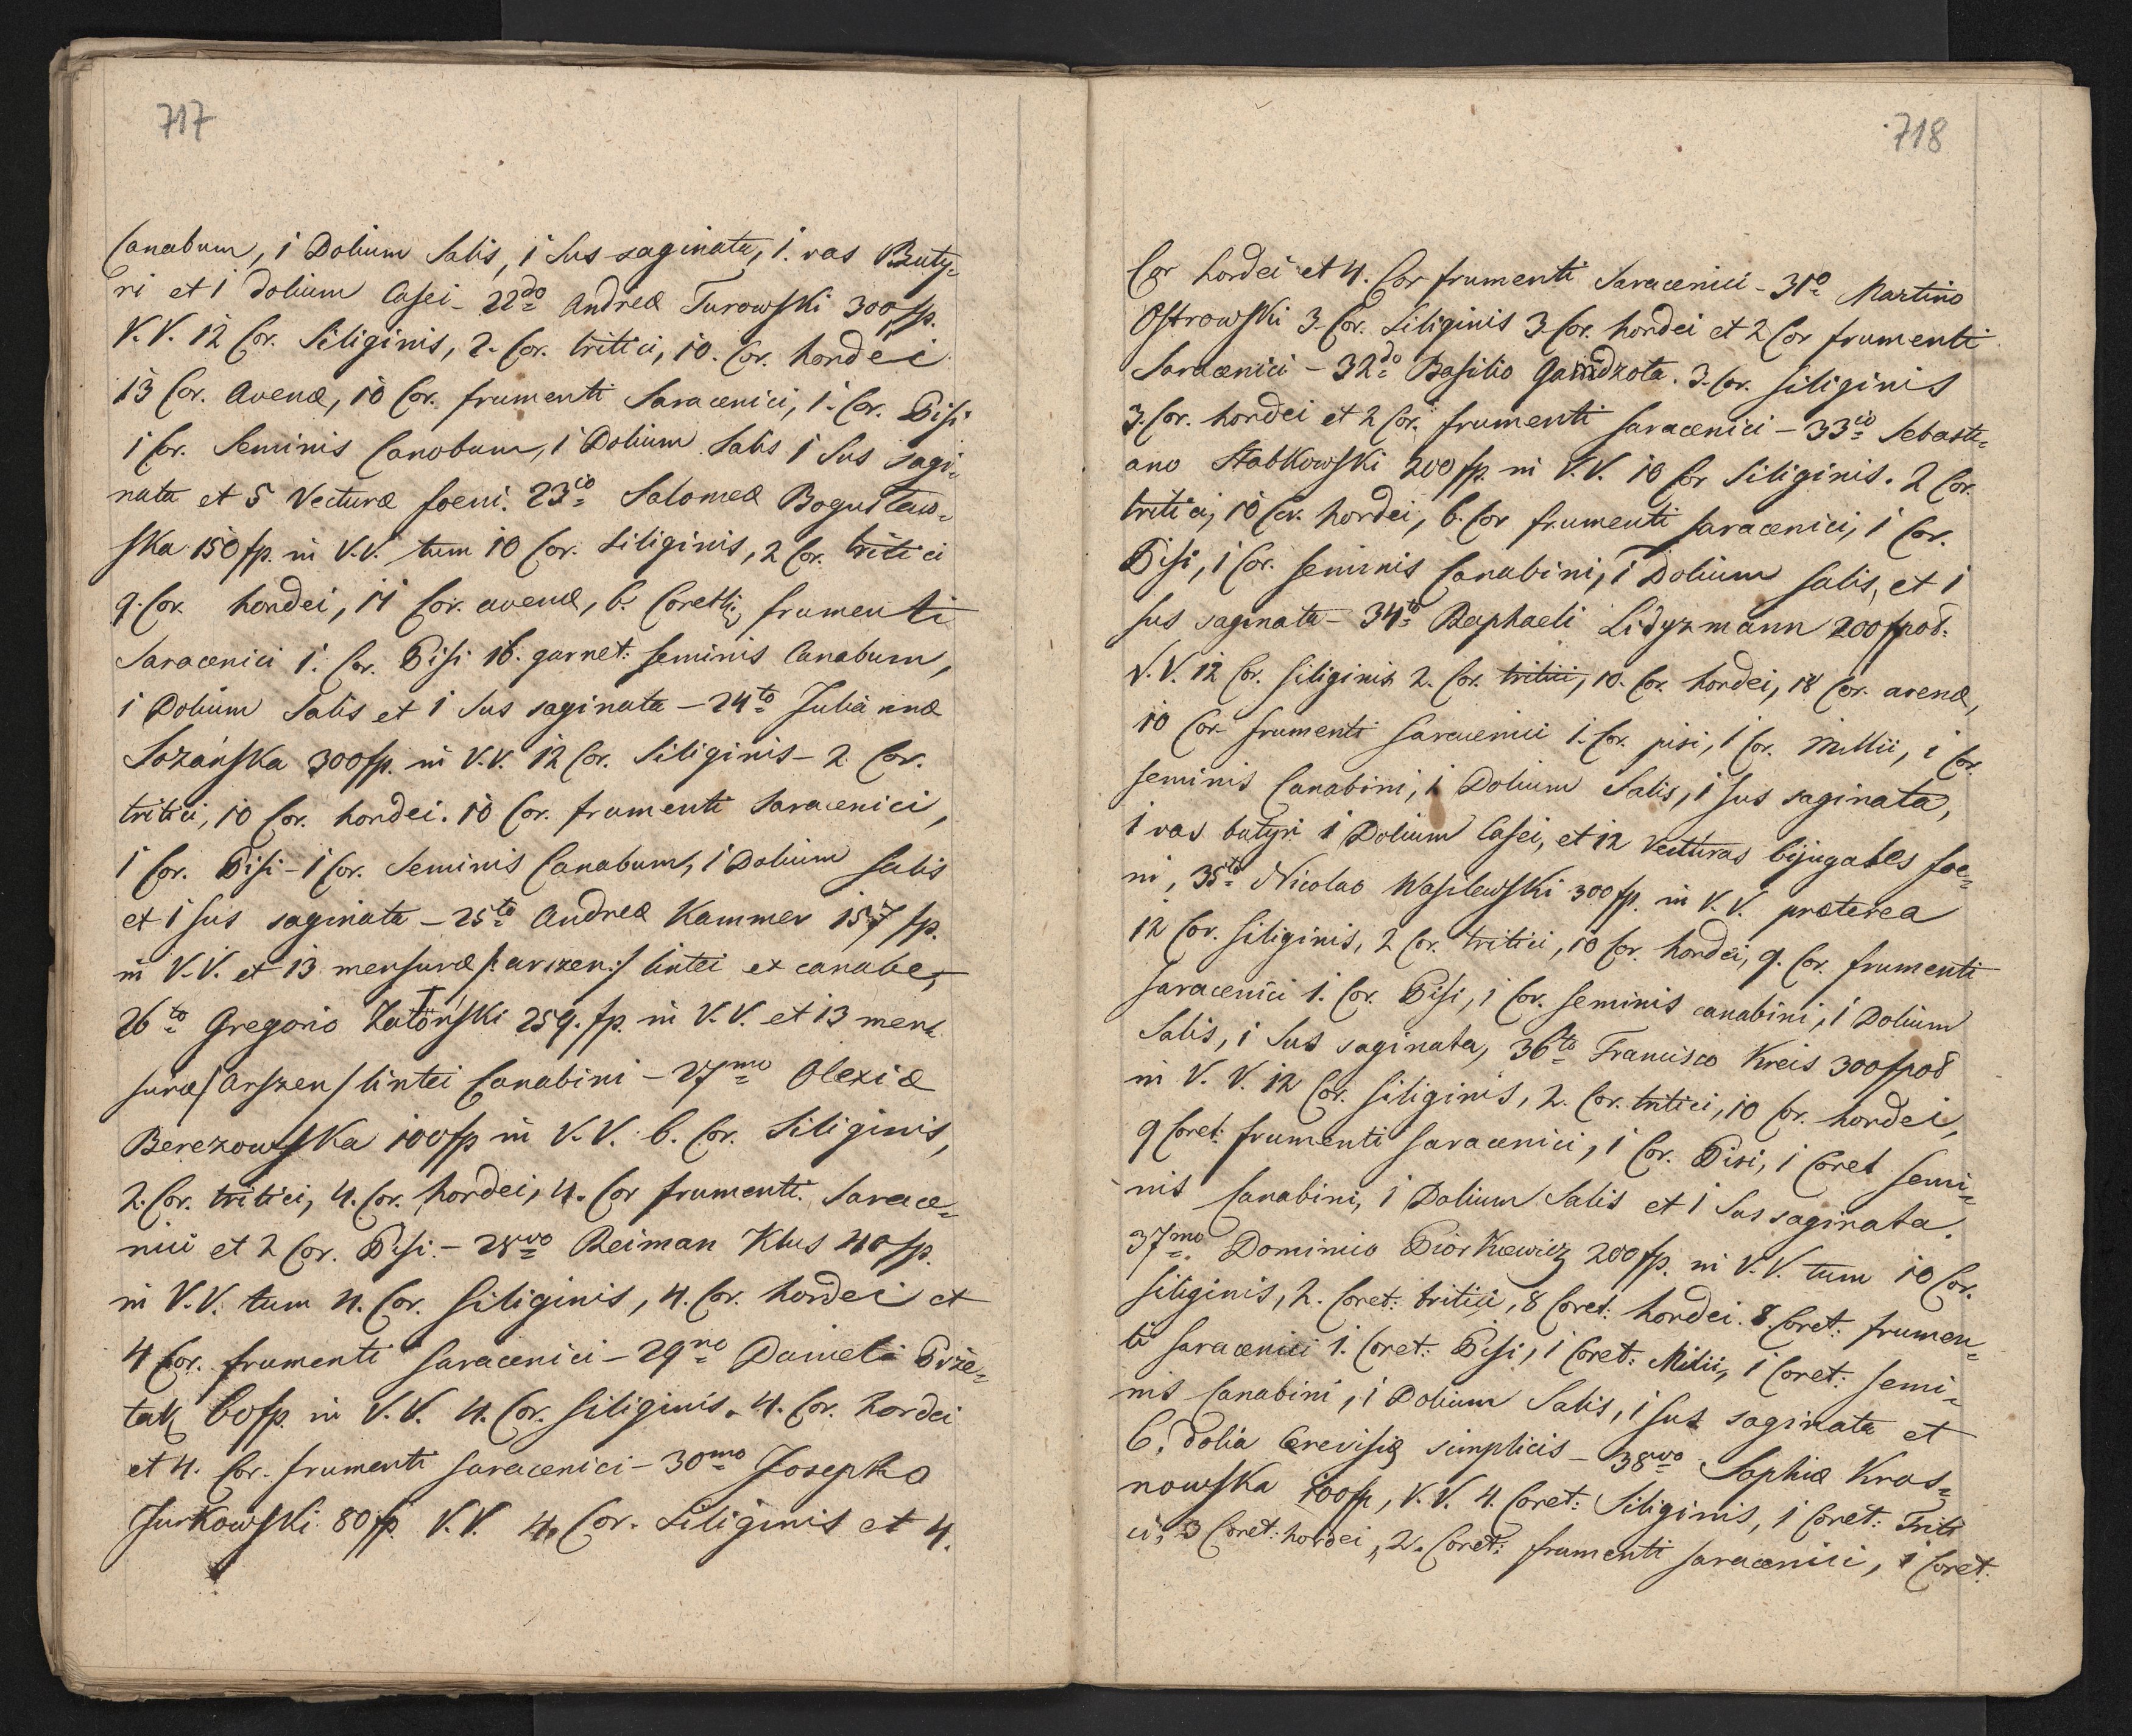 717
Canabum, 1 Dolium Salis, 1 Sus saginata, 1. vas Buty=
ri et 1 dolium Casei - 22do Andreæ Turowski 300 fp.
V.V. 12 Cor. Siliginis, 2. Cor. tritici, 10. Cor. hordei
13 Cor. Avenæ, 10 Cor. frumenti Saracenici, 1. Cor. Pisi
1 Cor. Seminis Canobum, 1 Dolium Salis 1 Sus sagi=
nata et 5 Vecturæ foeni. 23io Salomeæ Boguslaw=
ska 150 fp. in V.V. tum 10 Cor. Siliginis, 2 Cor. tritici
9. Cor. hordei, 11 Cor. avenæ, 6. Coretti frumenti
Saracenici 1. Cor. Pisi 16. garnet: seminis Canabum,
1 Dolium Salis et 1 Sus saginata - 24to Juliannæ
Sozańska 300 fp. in V.V. 12 Cor. Siliginis - 2. Cor.
tritici, 10 Cor. hordei. 10 Cor. frumenti Saracenici,
1 Cor. Pisi - 1 Cor. Seminis Canabum, 1 Dolium Salis
et 1 Sus saginata - 25to Andreæ Kammer 157 fp.
in V.V. et 13 mensuræ /: arszen :/ lintei ex canabe,
26to Gregorio Zatoński 259. fp. in V.V. et 13 men=
suræ / Arszen / lintei Canabini - 27mo Olexiæ
Berezowska 100 fp in V.V. 6. Cor. Siliginis,
2. Cor. tritici, 4. Cor. hordei, 4. Cor frumenti Sarace=
nici et 2 Cor. Pisi. - 28vo Reiman Klus 40 fp.
in V.V. tum 4. Cor. Siliginis, 4. Cor. hordei et
4 Cor. frumenti Saracenici - 29no Danieli Prze=
tak 60 fp. in V.V. 4. Cor. Siliginis. 4. Cor. hordei
et 4. Cor. frumenti saracenici - 30mo Josepho
Jurkowski 80 fp. V.V. 4. Cor. Siliginis et 4.
718
Cor hordei et 4. Cor frumenti Saracenici - 31o Martino
Ostrowski 3. Cor. Siliginis 3 Cor. hordei et 2 Cor frumenti
Saracenici - 32do Basilio Gamdzota. 3. Cor. siliginis
3. Cor. hordei et 2 Cor. frumenti saracenici - 33io Sebasti=
ano Stabkowski 200 fp. in V.V. 10 Cor Siliginis. 2 Cor.
tritici, 10 Cor. hordei, 6. Cor frumenti saracenici, 1 Cor.
Pisi, 1 Cor. seminis Canabini, 1 Dolium salis, et 1
sus saginata - 34to Raphaeli Lidyzmann 200 fpod.
V.V. 12 Cor. siliginis 2. Cor. tritici, 10. Cor. hordei, 18 Cor. avenæ,
10 Cor. frumenti saracenici 1. Cor. pisi, 1 Cor. Millii, 1 Cor.
seminis Canabini, 1 Dolium Salis, 1 sus saginata,
1 vas butyri 1 Dolium Casei, et 12 vecturas bijugales foe=
ni, 35to Nicolao Wasilewski 300 fp. in V.V. præterea
12 Cor. siliginis, 2 Cor. tritici, 10 Cor. hordei, 9. Cor. frumenti
saracenici 1. Cor. Pisi, 1 Cor. seminis canabini, 1 Dolium
Salis, 1 Sus saginata, 36to Francisco Kreis 300 fpod
in V.V. 12 Cor. siliginis, 2. Cor. tritici, 10 Cor. hordei,
9 Coret: frumenti saracenici, 1 Cor. Pisi, 1 Coret semi=
nis Canabini, 1 Dolium Salis et 1 Sus saginata.
37mo Dominico Piorkiewicz 200 fp. in V.V. tum 10 Cor.
siliginis, 2. Coret: tritici, 8 Coret: hordei. 8. Coret: frumen=
ti saracenici 1. Coret: Pisi, 1 Coret: Milii, 1 Coret: semi=
nis Canabini, 1 Dolium Salis, 1 sus saginata et
6. dolia Cerevisiæ simplicis - 38vo Sophiæ Kras=
nowska 100 fp, V.V. 4. Coret: Siliginis, 1 Coret: Triti
ci, 3 Coret: hordei, 2. Coret: frumenti saracenici, 1 Coret: